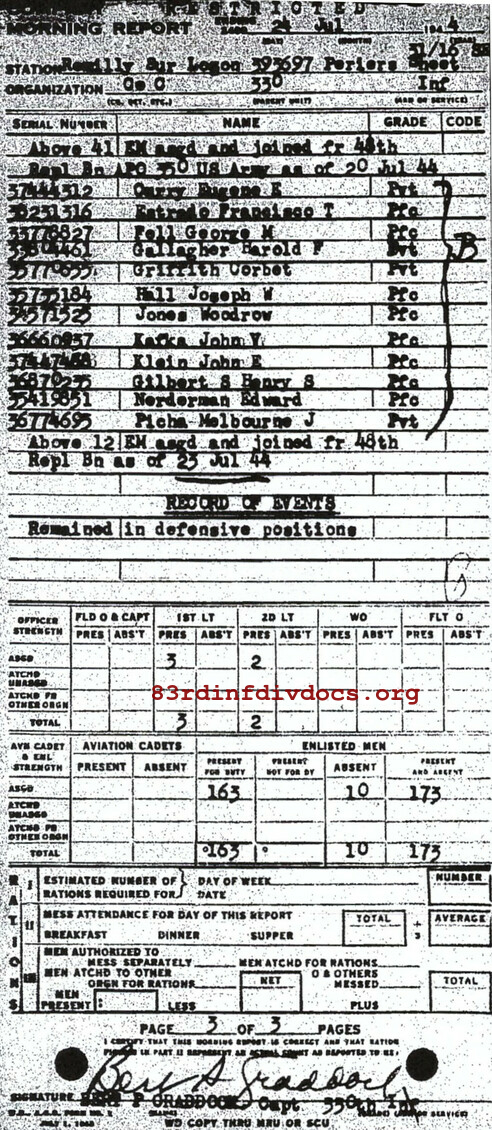 RESTRICTED
MORNING REPORT ENDING 24 Jul 1944
31/16
STATION Remilly Sur Lozon 393697 Periers Sheet
ORGANIZATION Co C 330 Inf
SERIAL NUMBER NAME GRADE CODE
Above 41 EM asgd and joined fr 48th
Repl Bn APO 350 US Army as of 20 Jul 44
37444312 Curry Eugene E Pvt
38231316 Estrado Francisco T Pfc
35778827 Fell George M Pfc
Gallagher Harold F Pvt B
Griffith Corbet Pvt
35735184 Hall Joseph W Pfc
34571523 Jones Woodrow Pfc
36660937 Kafka John V Pfc
Klein John E Pfc
36870235 Gilbert S Henry S Pfc
35419851 Norderman Edward Pfc
36774695 Picha Melbourne J Pvt
Above 12 EM asgd and joined fr 48th
Repl Bn as of 23 Jul 44
RECORD OF EVENTS
Remained in defensive positions
OFFICER STRENGTH FLD O & CAPT 1ST LT 2D LT WO FLT O
PRES ABS'T PRES ABS'T PRES ABS'T PRES ABS'T PRES ABS'T
ASGD 3 2
ATCHD UNASGD
ATCHD FR OTHER ORGN
83rdinfdivdocs.org
TOTAL 3 2
AVN CADET & ENL STRENGTH AVIATION CADETS ENLISTED MEN
PRESENT ABSENT PRESENT FOR DUTY PRESENT NOT FOR DY ABSENT PRESENT AND ABSENT
ASGD 163 10 173
ATCHD UNASGD
ATCHD FR OTHER ORGN
TOTAL 163 10 173
RATIONS
I ESTIMATED NUMBER OF RATIONS REQUIRED FOR } DAY OF WEEK DATE NUMBER
II MESS ATTENDANCE FOR DAY OF THIS REPORT TOTAL ÷ 3 AVERAGE
BREAKFAST DINNER SUPPER
III MEN AUTHORIZED TO MESS SEPARATELY MEN ATCHD FOR RATIONS
MEN ATCHD TO OTHER ORGN FOR RATIONS NET O & OTHERS MESSED TOTAL
MEN PRESENT : LESS PLUS
PAGE 3 OF 3 PAGES
I CERTIFY THAT THIS MORNING REPORT IS CORRECT AND THAT RATION
FIGURES IN PART II REPRESENT AN ACTUAL COUNT AS REPORTED TO ME:
SIGNATURE BERT P CRADDOCK Capt 330th Inf
W.D., A.G.O. FORM NO. 1
JULY 1, 1943
WD COPY THRU MRU OR SCU